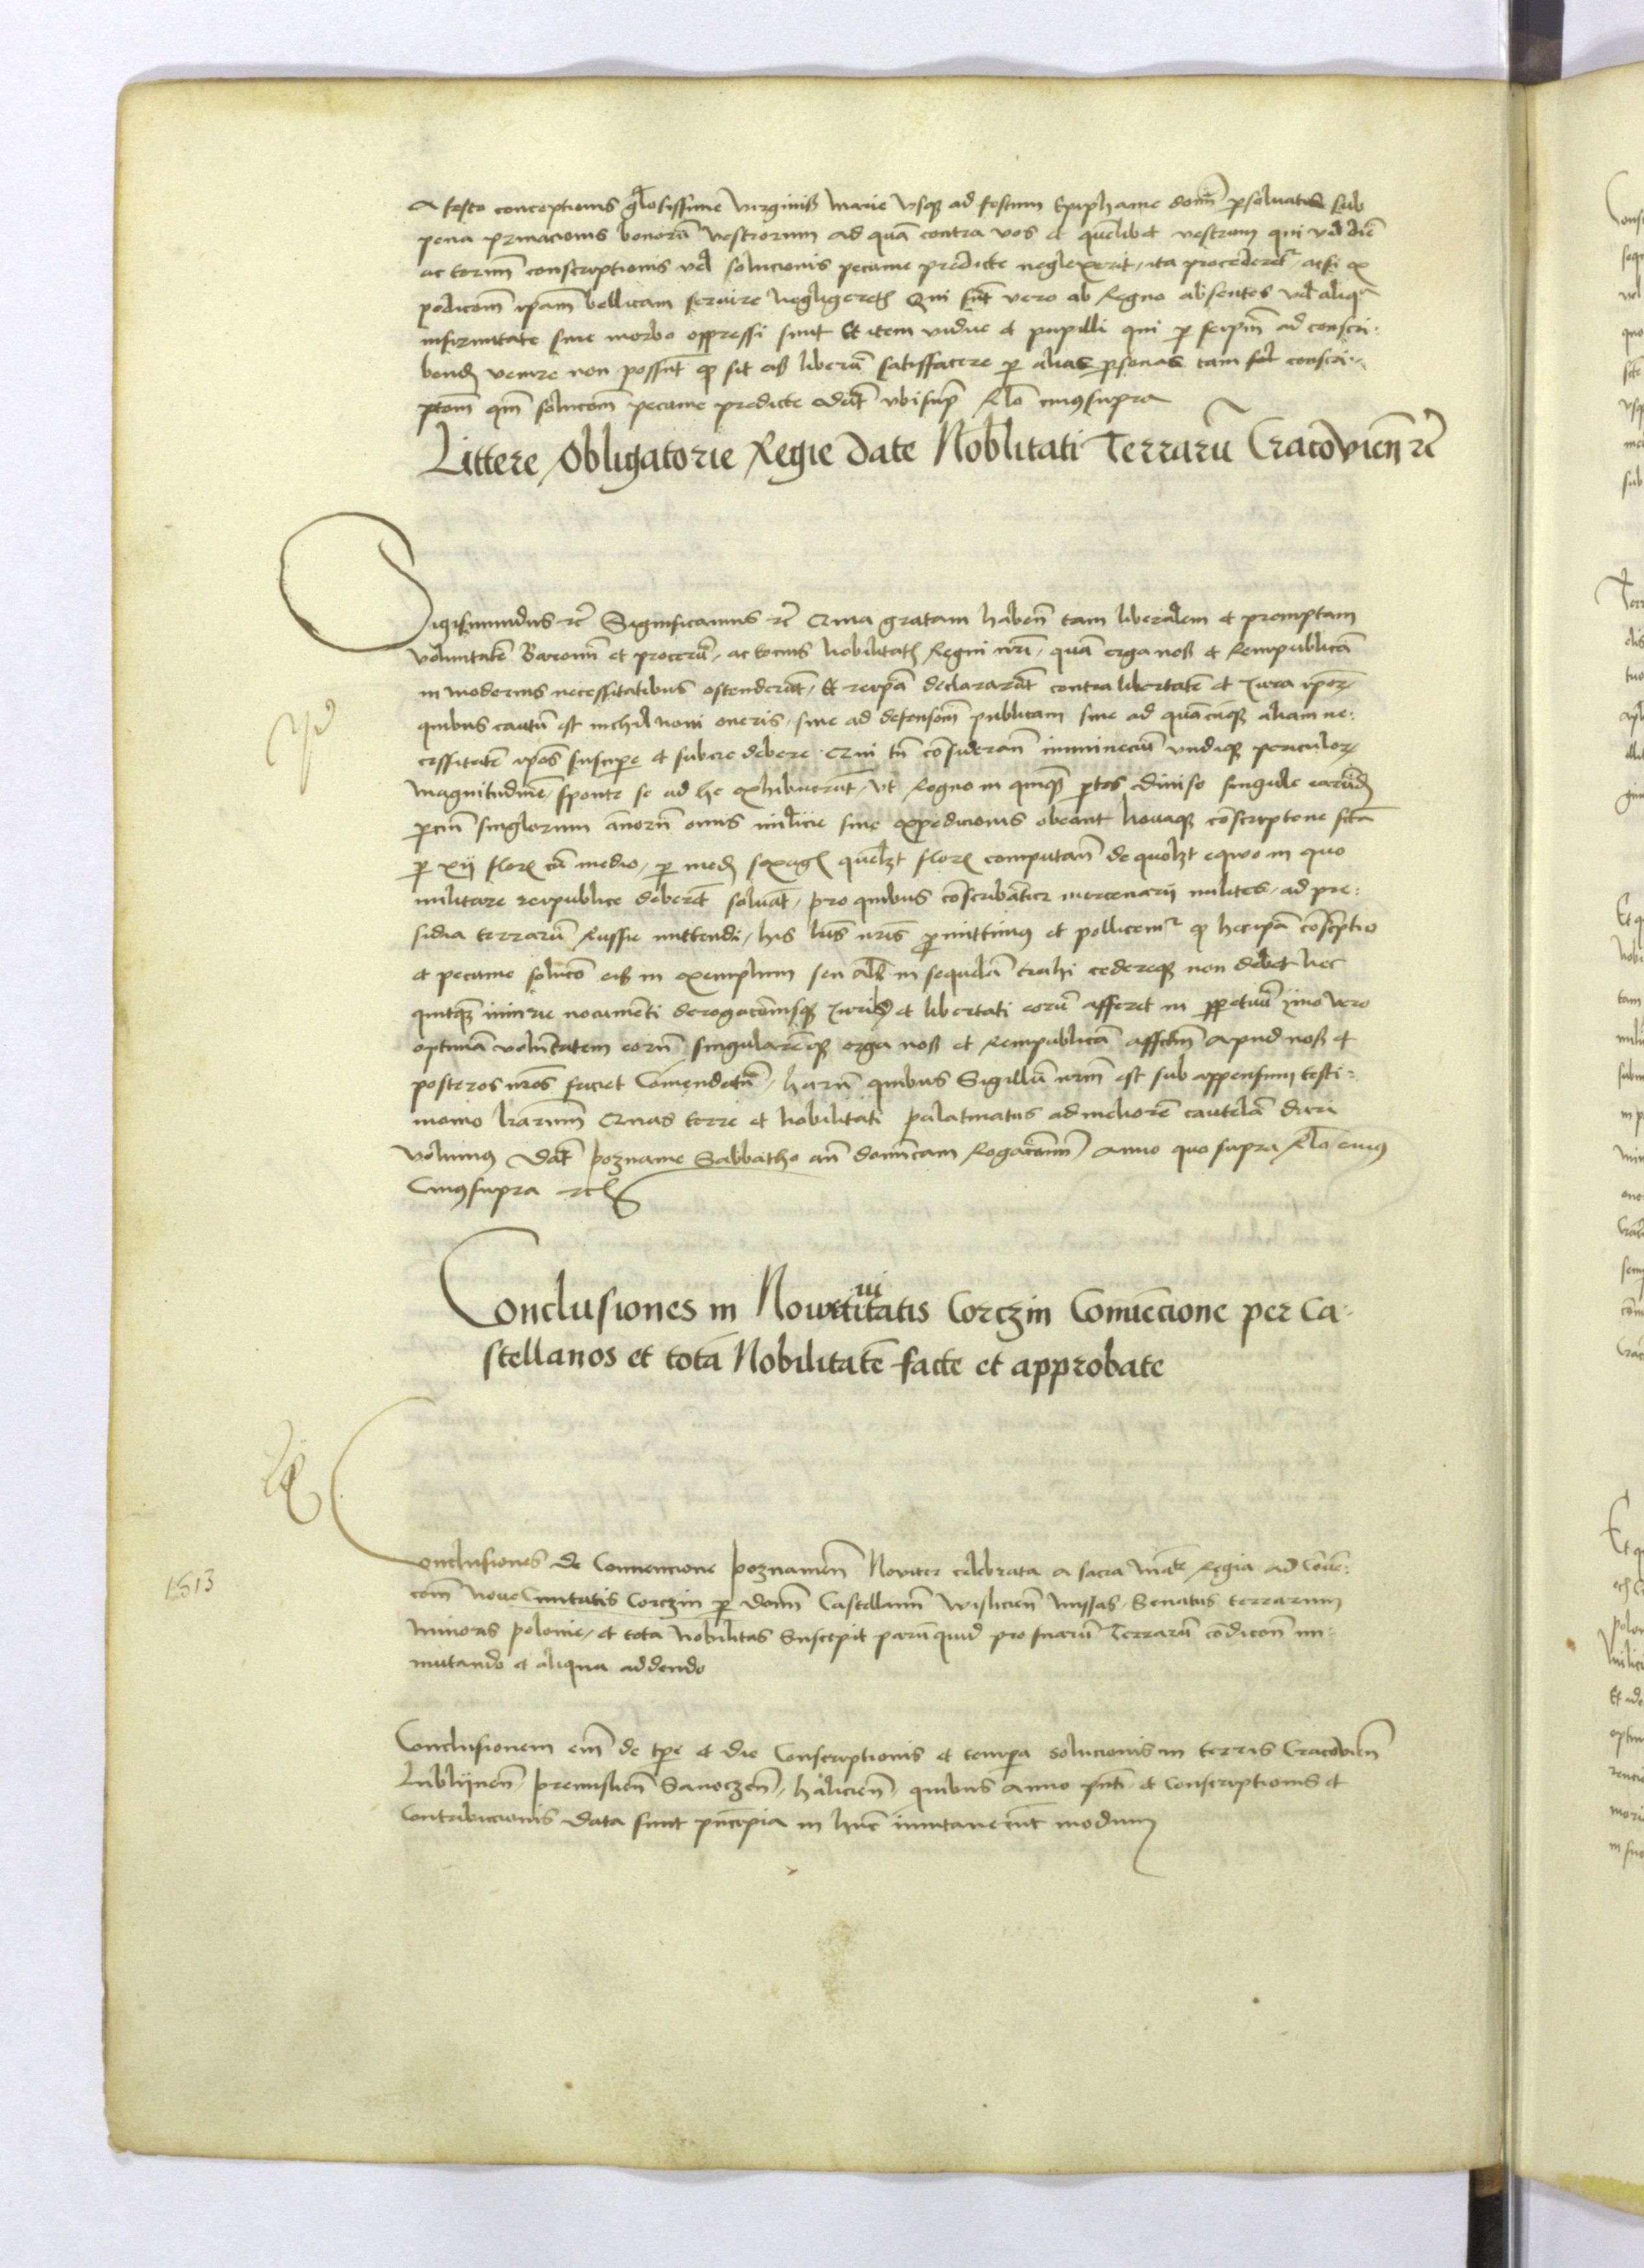 A festo conceptionis gl̃osissime virginis Marie vsq3 ad festum Epiphanie dom̃ persoluatis sub
pena priuacionis bonorũ vestrorum ad quã contra vos et quẽlibet vestrum qui vel diẽ
ac termĩ conscriptionis vel solucionis pecunie predicte neglexerit, ita procederet᷑, acsi ex
pedicom̃ ipam̃ bellicam seruire negligeret Qui sunt vero ab Regno absentes vel aliqua
infirmitate siue morbo oppressi sunt Et item vidue et pupilli qui per seipm̃ ad conscri:
bend̃ venire non possunt q sit eis liberũ satisffacere per alias personas tam conscri:
ptom̃ qm̃ solucom̃ pecunie predicte Dat̃ vbisup̃ Rl̃o cuiussupra
Littere Obligatorie Regie Date Nobilitati Terrarũ Cracouieñ rc̃
Sigismundus rc̃ Significamus rc̃ Quia gratam habeñ tam liberalem et promptam
voluntatẽ Baronũ et procerũ, ac tocius nobilitatis Regni nr̃i, quã erga nos et Rempublicã
in modernis necessitatibus ostenderũt, Et reip̃a declararũt contra libertatẽ et Jura ip̃or
quibus cautũ est nichil noui oneris, siue ad defensom̃ publicam siue ad quãcũq3 aliam ne:
cessitatẽ ip̃os suscipe et subire debere Qui tñ cõsiderañ imminenciũ vndiq3 periculor
magnitudinẽ, sponte se ad hec exhibuerũt, vt Regno in quinq3 p̃tes diuiso singule earũd̃
parciũ singlorum annorũ onus milicie siue expedicionis obeant nouaq3 cõscriptone
per xij flor̃ cũ medio, per med̃ sexag̃ quelz̃t flor̃ computañ de quolz̃t equo in quo
militare reipublice deberẽt soluãt, pro quibus cõscribãtur mercenarij milites, ad pre:
sidia terrarũ Russie mittendi, his lr̃is nr̃is p̃mittimus et pollicemur q hec ip̃a cõscriptio
et pecunie soluco eis in exemplum seu als̃ in sequelã trahi cedereq3 non debet nec
quitq3 iniurie nocumenti derogacõnisq3 Juribus et libertati eorũ afferet in perpetuũ ymo vero
optimã voluntatem eorũ singularẽq3 erga nos et Rempublicã affctm̃ apud nos et
posteros nr̃os faciet Comendatũ, harũ quibus Sigillũ nr̃m est sub appensum testi:
monio lr̃arum Quas terre et nobilitati palatinatus ad meliorẽ cautelã dari
volumus Dat̃ Poznanie Sabbatho añ dom̃cam Rogac̃onũ Anno quo supra Rl̃o eius
Cuiussupra rc̃
Conclusiones in Nowe ciuitatis Corczin Conuẽcione per Ca:
stellanos et totã Nobilitatẽ facte et approbate
1513
Conclusiones de Conuencione Poznanieñ Nouiter celebrata a sacra Mate Regia ad Cõuẽ:
com̃ Noue Ciuitatis Corczin per dom̃ Castellanũ Wislicieñ missas, Senatus terrarum
minoris Polonie, et tota Nobilitas Suscepit parũquid pro suarũ Terrarũ cõdicon̄ im:
mutando et aliqua addendo
Conclusionem em̃ de tpe et die Conscriptionis et tempa solucionis in terris Cracouieñ
Lublijneñ, Premislieñ Sanoczeñ, Halicieñ, quibus anno pñti et Conscriptionis et
Contribucionis data sunt pñcipia in hũc inmutauerũt modum